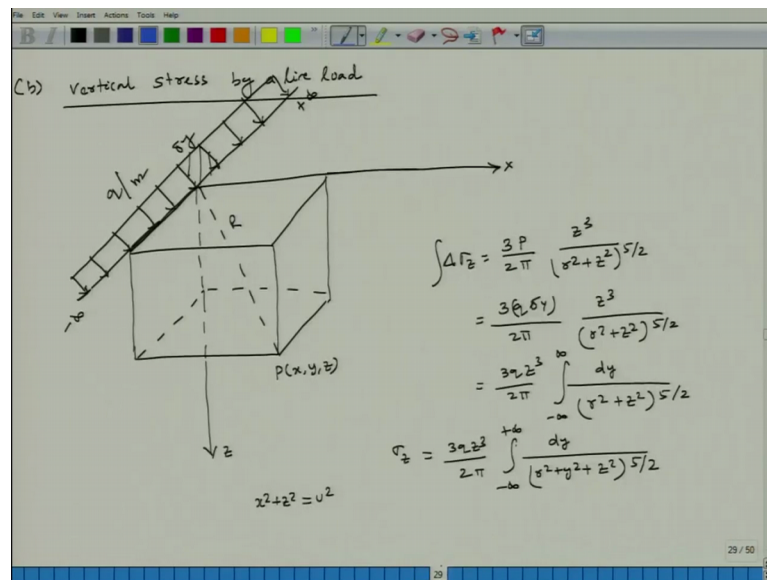 File Edit View Insert Actions Tools Help
B I
(b) vertical stress by a line load
∞
x
δy
q/m
x
R
-∞
P(x,y,z)
z
∫Δσz = 3P/2π z³/(r²+z²)^5/2
= 3(qδy)/2π z³/(r²+z²)^5/2
= 3qz³/2π ∫_-∞^∞ dy/(r²+z²)^5/2
σz = 3qz³/2π ∫_-∞^+∞ dy/(x²+y²+z²)^5/2
x²+z² = u²
29 / 50
29